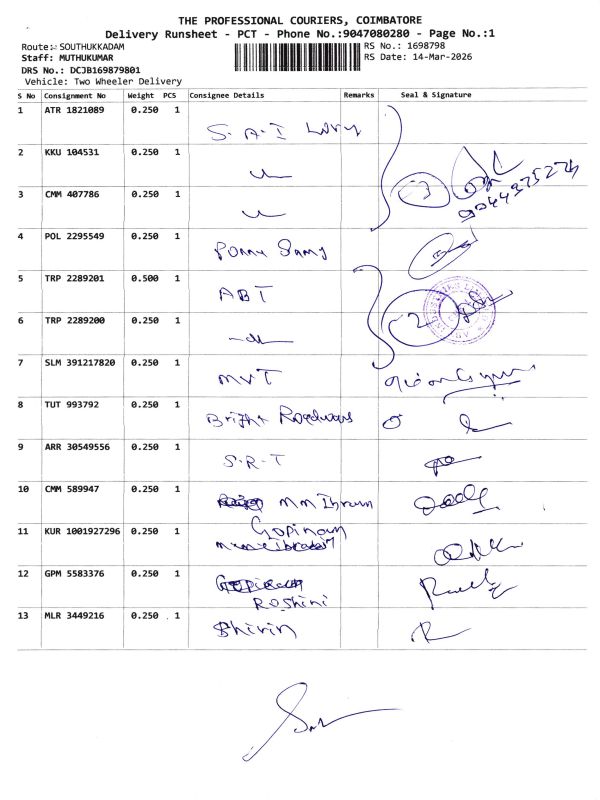 THE PROFESSIONAL COURIERS, COIMBATORE
Delivery Runsheet - PCT - Phone No.:9047080280 - Page No.:1
Route:- SOUTHUKKADAM
RS No.: 1698798
Staff: MUTHUKUMAR
RS Date: 14-Mar-2026
DRS No.: DCJB169879801
Vehicle: Two Wheeler Delivery
S No Consignment No Weight PCS Consignee Details Remarks Seal & Signature
1 ATR 1821089 0.250 1 S.A.I Lorry
2 KKU 104531 0.250 1
3 CMM 407786 0.250 1
3
4 POL 2295549 0.250 1
5 TRP 2289201 0.500 1 ABT
6 TRP 2289200 0.250 1
2
7 SLM 391217820 0.250 1 MVT
8 TUT 993792 0.250 1 Bright Roadways
9 ARR 30549556 0.250 1 S.R.T
10 CMM 589947 0.250 1
11 KUR 1001927296 0.250 1
12 GPM 5583376 0.250 1 Roshini
13 MLR 3449216 0.250 1 Shirin